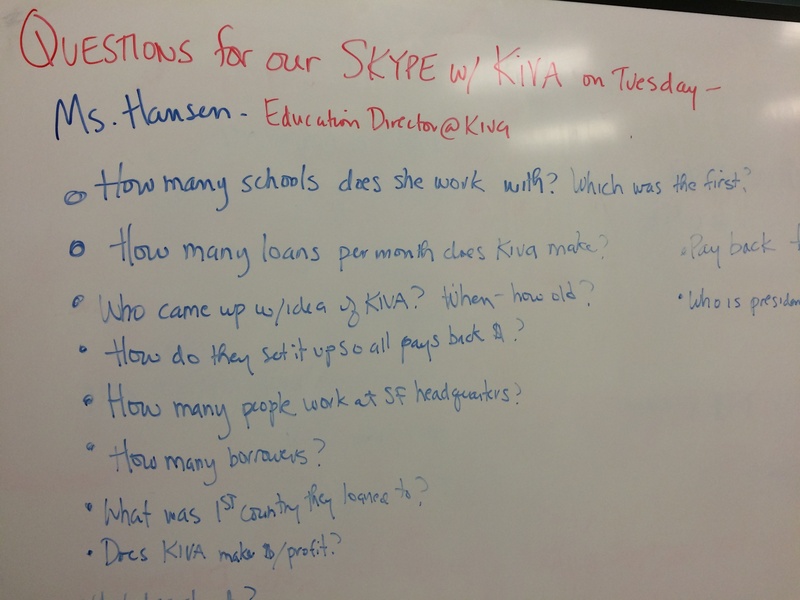 QUESTIONS for our SKYPE w/ KIVA on Tuesday -
Ms. Hansen - Education Director@Kiva
How many schools does she work with? Which was the first?
How many loans per month does Kiva make?
Who came up w/idea of KIVA? When - how old?
How do they set it up so all pays back $?
How many people work at SF headquarters?
How many borrowers?
What was 1ST country they loaned to?
Does KIVA make $/profit?
Pay back
Who is presiden